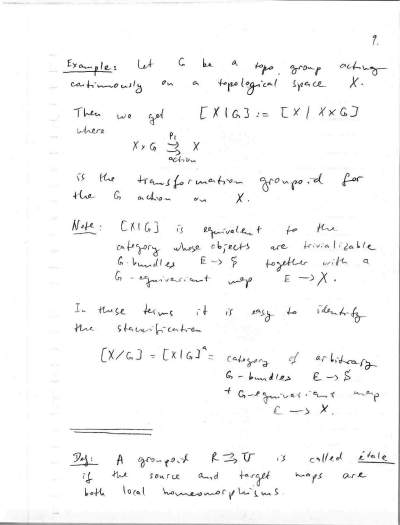 9.
Example: Let G be a topo. group acting
continuously on a topological space X.
Then we get [X|G] := [X | X×G]
where
X×G ⇉ X
p₁
action
is the transformation groupoid for
the G action on X.
Note: [X|G] is equivalent to the
category whose objects are trivializable
G-bundles E → S together with a
G-equivariant map E → X.
In these terms it is easy to identify
the stackification
[X/G] = [X|G]ᵃ = category of arbitrary
G-bundles E → S
+ G-equivariant map
E → X.
Def: A groupoid R ⇉ U is called étale
if the source and target maps are
both local homeomorphisms.